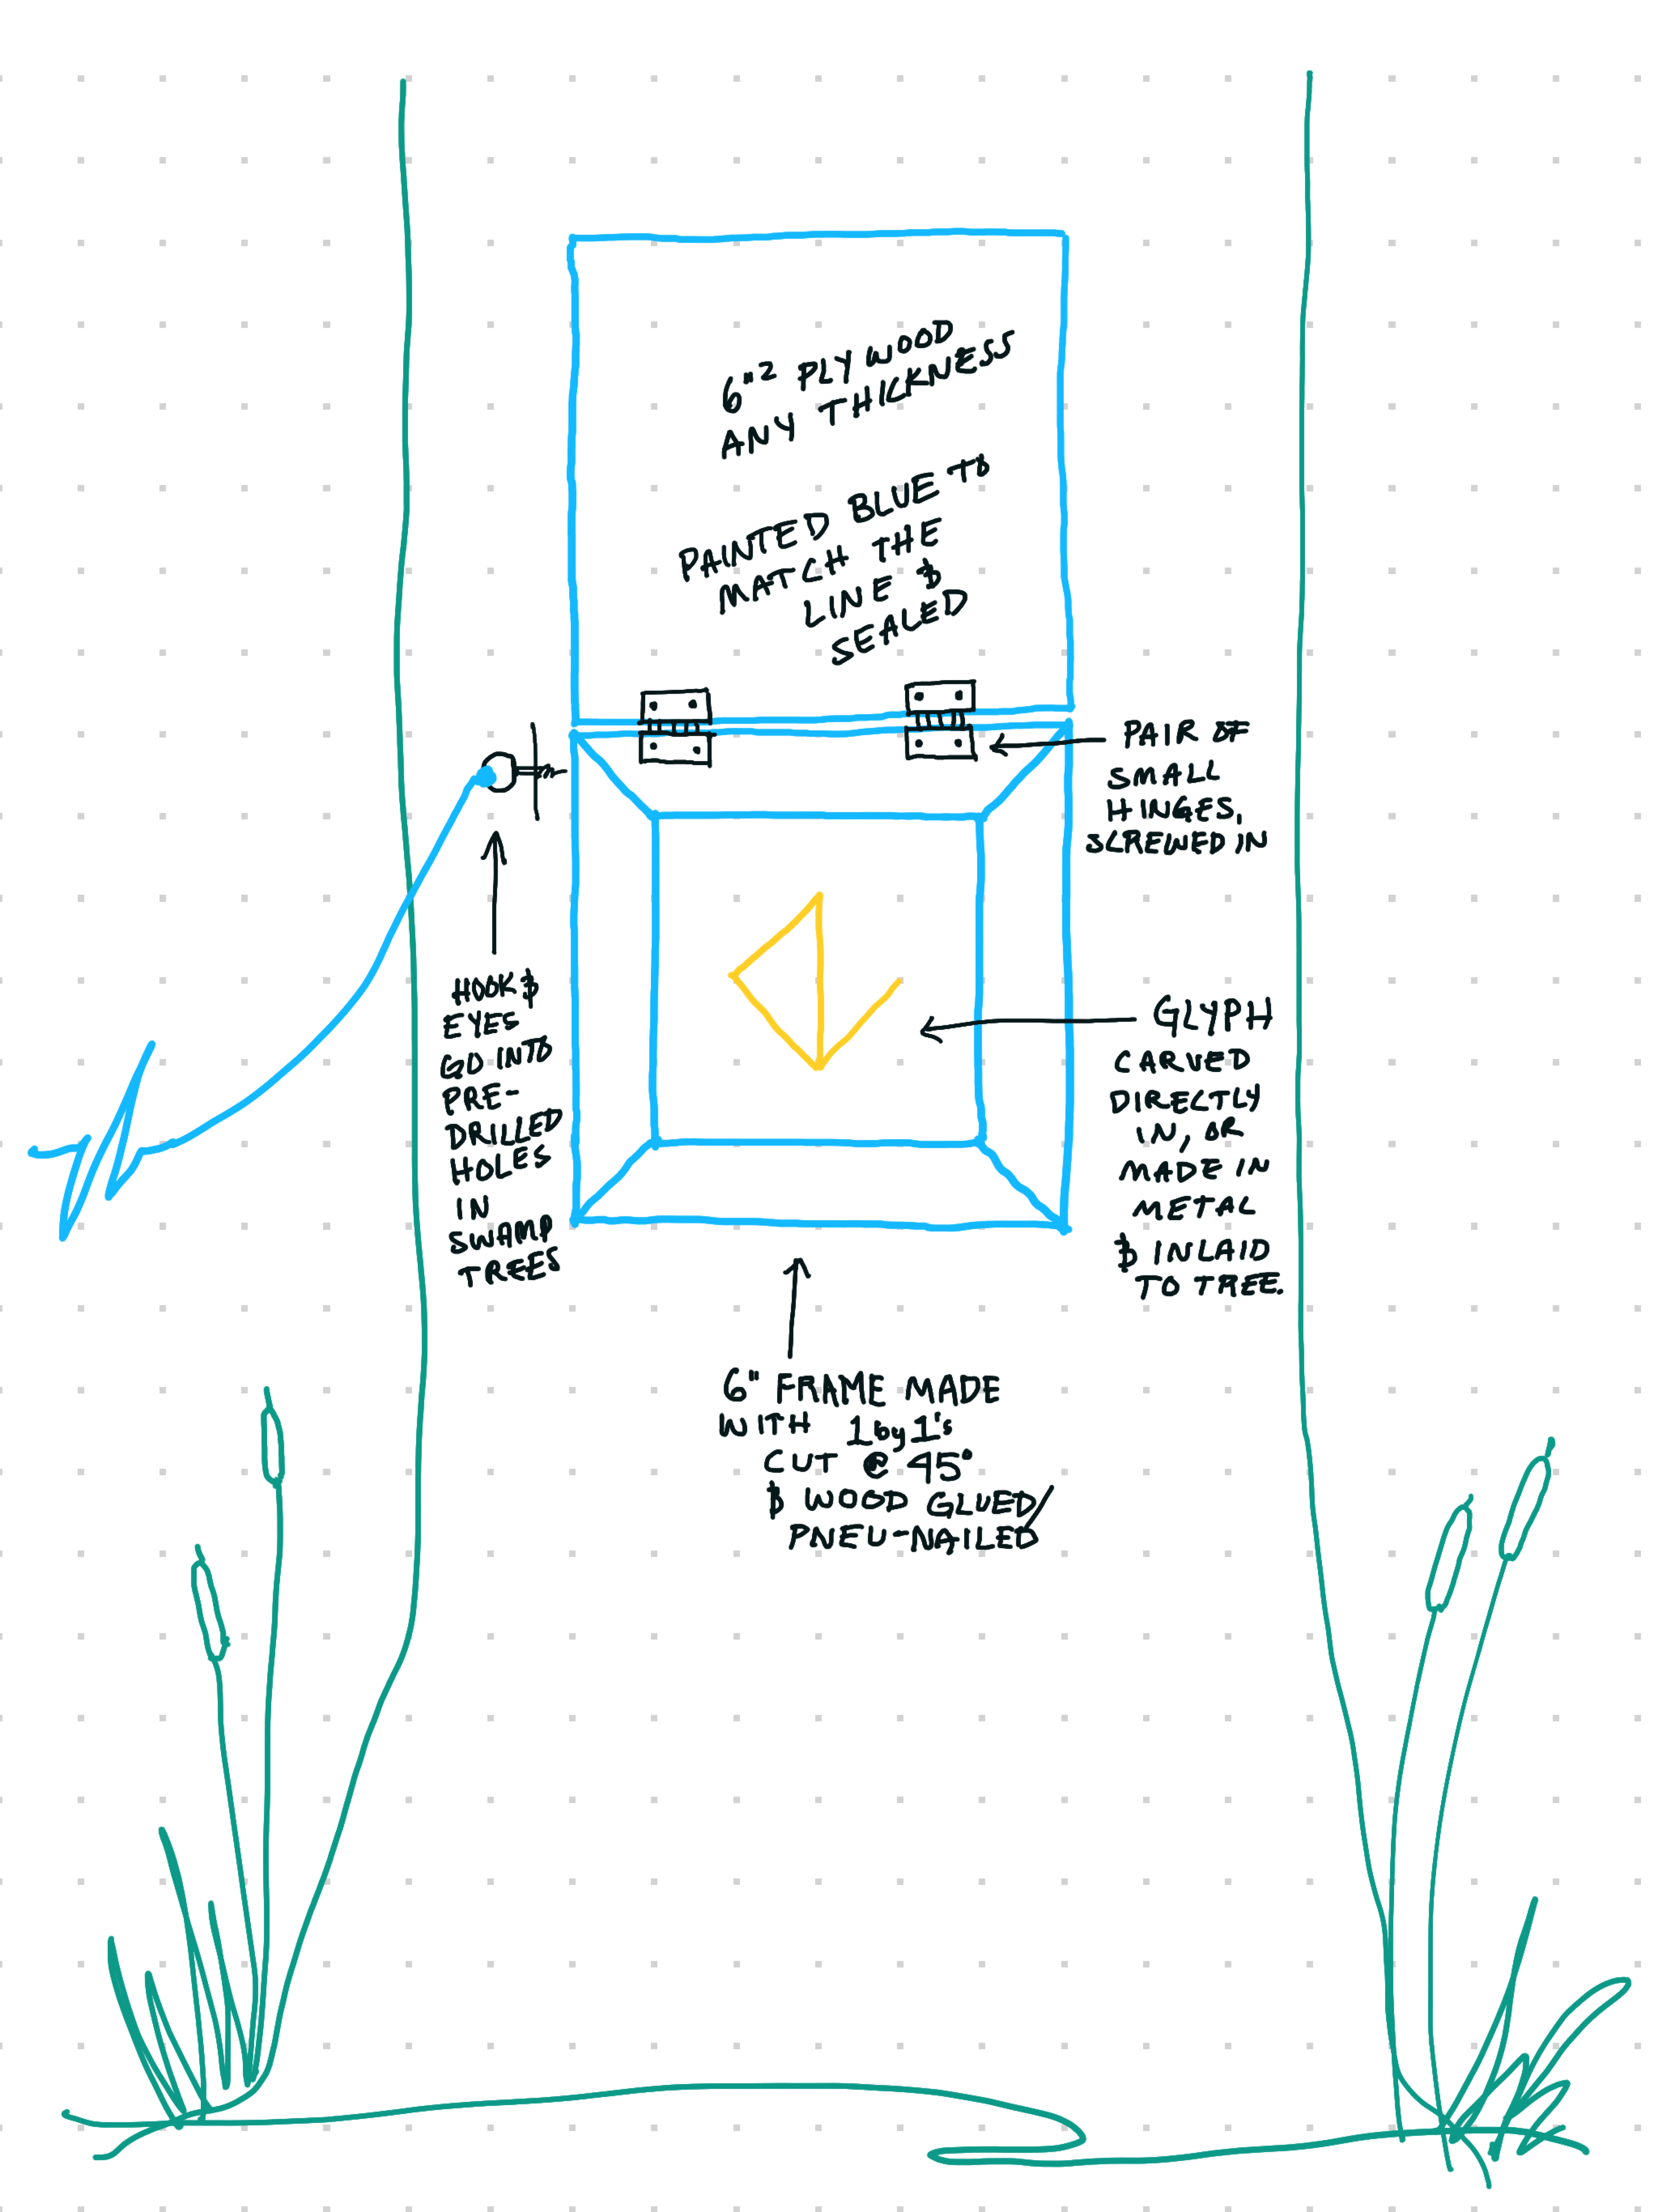 6"² PLYWOOD
ANY THICKNESS
PAINTED BLUE TO
MATCH THE
LINE &
SEALED
PAIR OF
SMALL
HINGES,
SCREWED IN
HOOK &
EYES
GO INTO
PRE-
DRILLED
HOLES
IN
SWAMP
TREES
GLYPH
CARVED
DIRECTLY
IN, OR
MADE IN
METAL
& INLAID
TO TREE.
6" FRAME MADE
WITH 1by1's
CUT @ 45°
& WOOD GLUED/
PNEU-NAILED